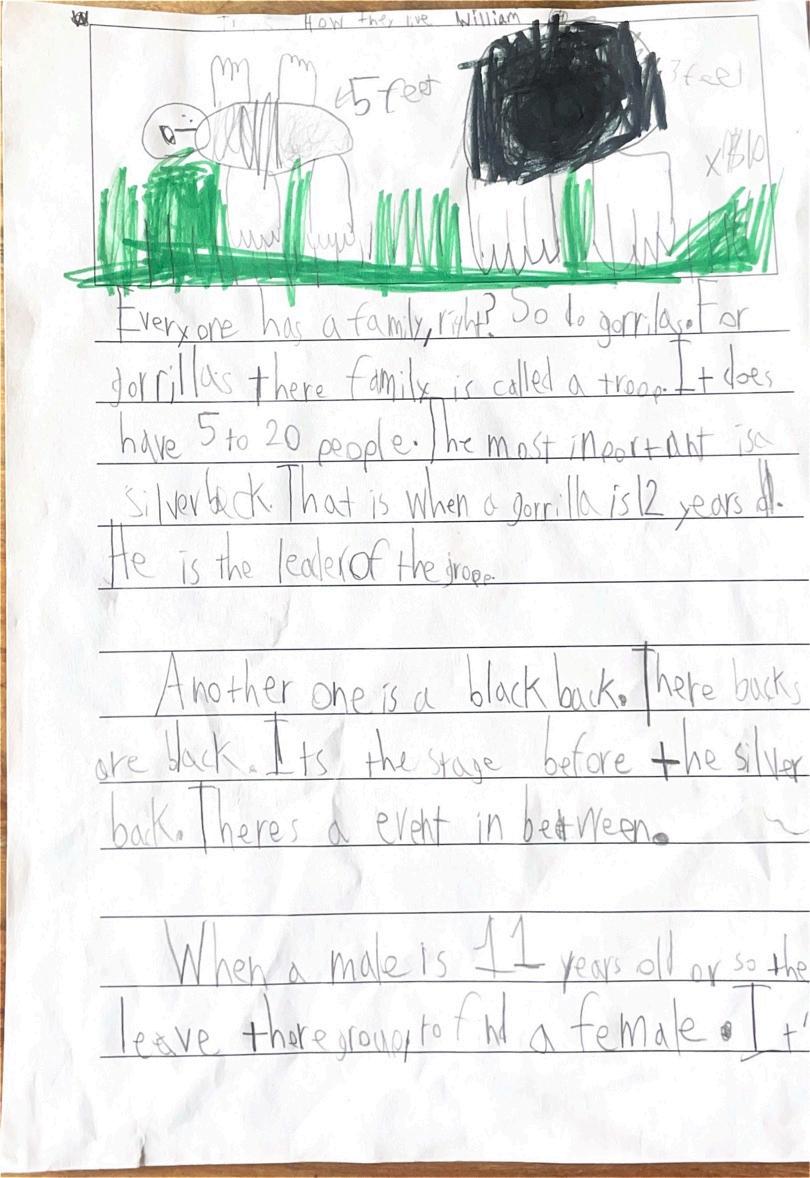 How they live William
5 feet
3 feet
Everyone has a family, right? So do gorrilas. For
gorrillas there family is called a troop. It does
have 5 to 20 people. The most inportant is a
silverback. That is when a gorrilla is 12 years old.
He is the leader of the grope.
Another one is a black back. There backs
are black. Its the stage before the silver
back. Theres a event in between.
When a male is 11 years old or so the
leave there group, to find a female. It'